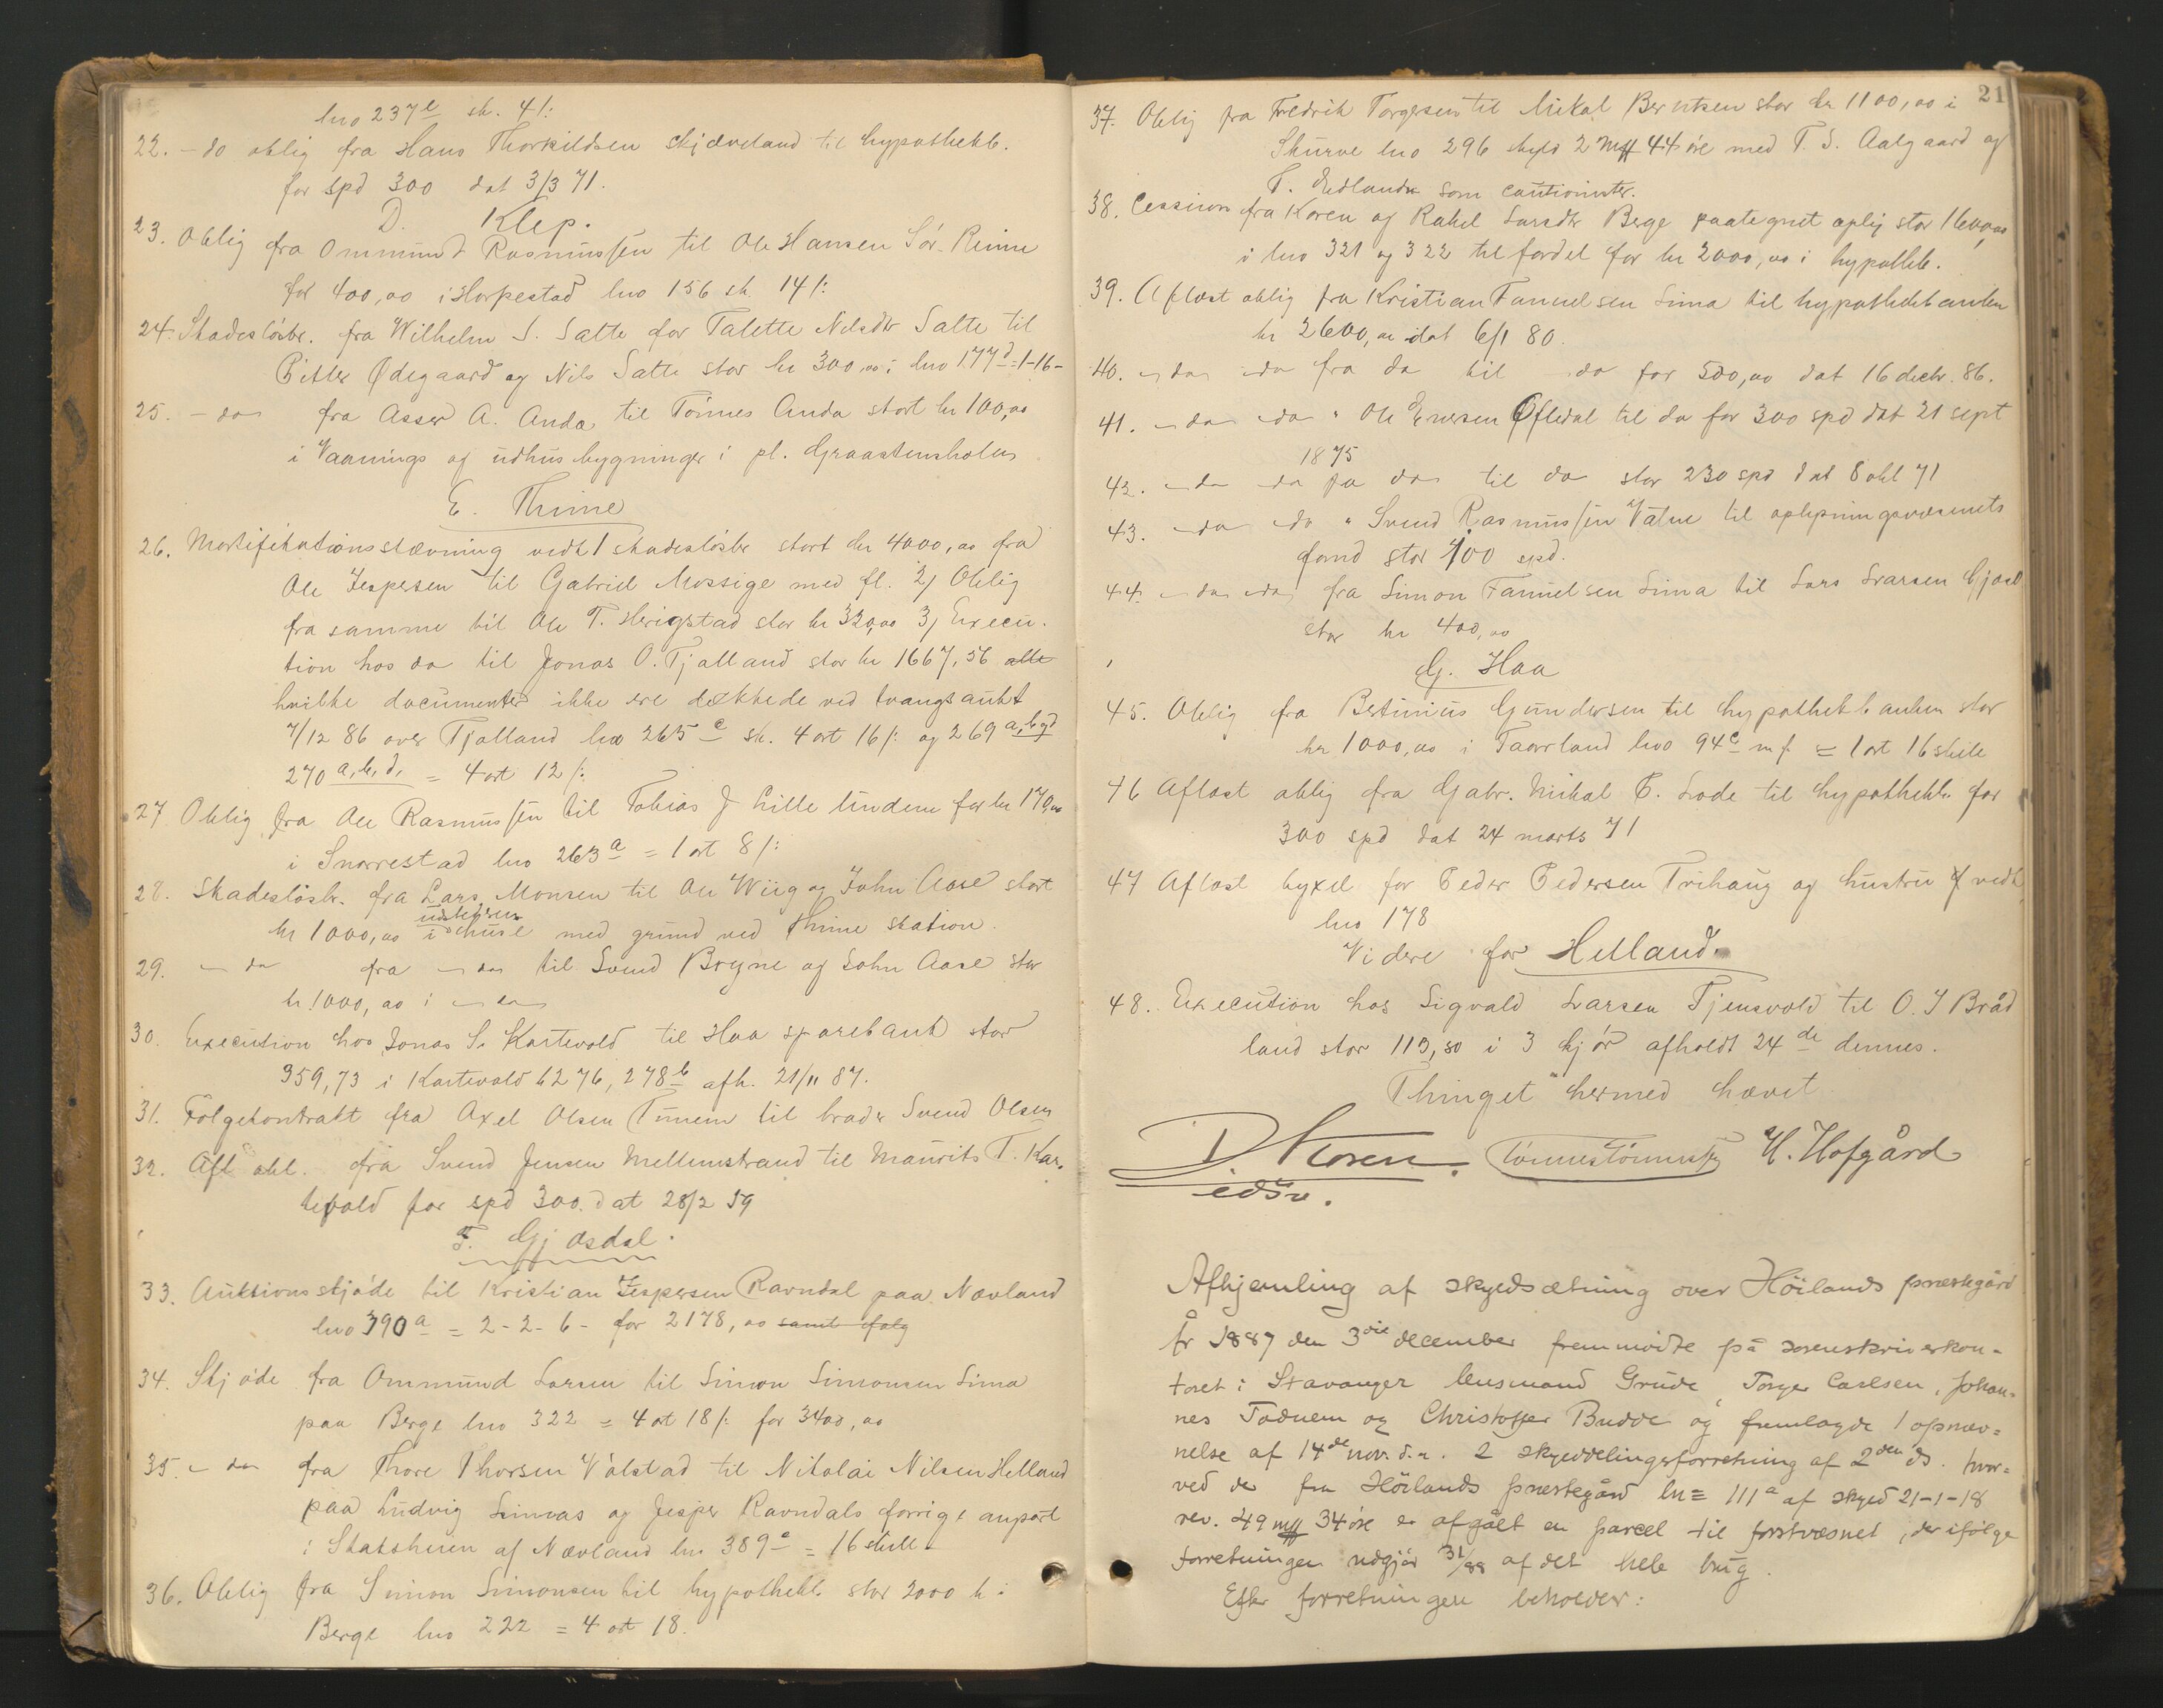 lno 237e sk. 4 /:
22. - do oblig fra Hans Thorkildsen Skjæveland til hypothekb.
for spd 300 dat 3/3 71.
D. Klep.
23. Oblig fra Ommund Rasmussen til Ole Hansen Sör-Reime
for 400,00 i Horpestad lno 156 sk. 14 /:
24. Skadeslösbr. fra Wilhelm S. Salte for Talette Nilsdtr Salte til
Peder Ødegaard og Nils Salte stor kr 300,00 i lno 177d = 1-16-
25. - do fra Asser A. Anda til Tönnes Anda stort kr 100,00
i Vaanings og udhusbygninger i pl. Graastensholen
E. Thime
26. Mortifikationsstævning vedk 1 skadeslösbr stort kr 4000,00 fra
Ole Jespersen til Gabriel Mossige med fl. 2) Oblig
fra samme til Ole T. Herigstad stor kr 320,00 3) Execu-
tion hos do til Jonas O. Tjalland stor kr 1667,56 alle
hvilke documenter ikke ere dækkede ved tvangsaukt
7/12 86 over Tjalland lno 265c sk. 4 ort 16 /: og 269 a, b og d
270 a, b, d, = 4 ort 12 /:
27 Oblig fra Ole Rasmussen til Tobias J Lille Undem for kr 170,00
i Snorrestad lno 263a = 1 ort 8 /:
28. Skadeslösbr. fra Lars Monsen til Ole Wiig og John Aase stort
kr 1000,00 i huse med grund ved Thime station.
29. - do fra - do til Svend Bryne og John Aase stor
kr 1000,00 i - do
30. Execution hos Jonas S. Kartevold til Haa sparebank stor
959,73 i Kartevold 6276, 278b afh. 21/11 87.
31. Fölgekontrakt fra Axel Olsen Tunem til broder Svend Olsen
32. Afl obl. fra Svend Jensen Mellemstrand til Maurits T. Kar-
tevold for spd 300. dat 28/2 59
F. Gjæsdal.
33. Auktionsskjöde til Kristian Jespersen Ravndal paa Nævland
lno 390a = 2-2-6- for 2178,00 samt fölg
34. Skjöde fra Ommund Larsen til Simon Simonsen Lima
paa Berge lno 322 = 4 ort 18 /: for 3400,00
35. - do fra Thore Thorsen Válstad til Nikolai Nilsen Helland
paa Ludvig Limas og Jesper Ravndals forrige anpart
i Statshuen af Nævland lno 389e = 16 skill
36. Oblig fra Simon Simonsen til hypothekb. stor 2000 k i
Berge lno 222 = 4 ort 18.
21
37. Oblig fra Fredrik Torgersen til Mikal Berntsen stor kr 1100,00 i
Skurve lno 296 skyld 2 mk 44 öre med T. S. Aalgaard og
T. Edland som cautionister.
38. Cession fra Koren og Rakel Larsdtr Berge paategnet oplig stor 1600,00
i lno 321 og 322 til fordel for kr 2000,00 i hypothb.
39. Aflöst oblig fra Kristian Fanuelsen Lima til hypothekbanken
kr 2600,00 dat 6/1 80.
40. - do - do fra do til do for 500,00 dat 16 decbr. 86.
41. - do - do " Ole Enersen Oftedal til do for 300 spd dat 21 sept
1875
42. - do do fra do til do stor 230 spd dat 8 okt 71
43. - do do " Svend Rasmussen Vatne til oplysningsvæsenets
fond stor 700 spd.
44. - do do fra Simon Fanuelsen Lima til Lars Larsen Gjøsd
stor kr 400,00
G. Haa
45. Oblig fra Bertinius Gundersen til hypothekbanken stor
kr 1000,00 i Taarland lno 94c m f. = 1 ort 16 skill
46 Aflöst oblig fra Gabr. Mikal P. Lode til hypothekb. for
300 spd dat 24 marts 71
47 Aflöst byxel for Peder Pedersen Trihaug og hustru vedk
lno 178
Videre for Helland.
48. Execution hos Sigvald Larsen Tjensvold til O. J Bråd
land stor 119,80 i 3 kjör afholdt 24de dennes.
Thinget hermed hævet
D. Koren. Tönnes Tönnessen H. Hofgård
edsv.
Afhjemling af skyldsætning over Höilands præstegård
År 1887 den 3die december fremmödte på sorenskriverkon-
toret i Stavanger lensmand Grude, Torger Carlsen, Johan-
nes Todnem og Christoffer Budde og fremlagde 1 opnæv-
nelse af 14de nov. d. a. 2 skylddelingsforretning af 2den ds. hvor-
ved der fra Höilands præstegård lno 111a af skyld 21-1-18
rev. 49 mk 34 öre er afgået en parcel til forstvæsnet, der ifölge
forretningen udgjör 31/88 af det hele brug.
Efter forretningen beholder: